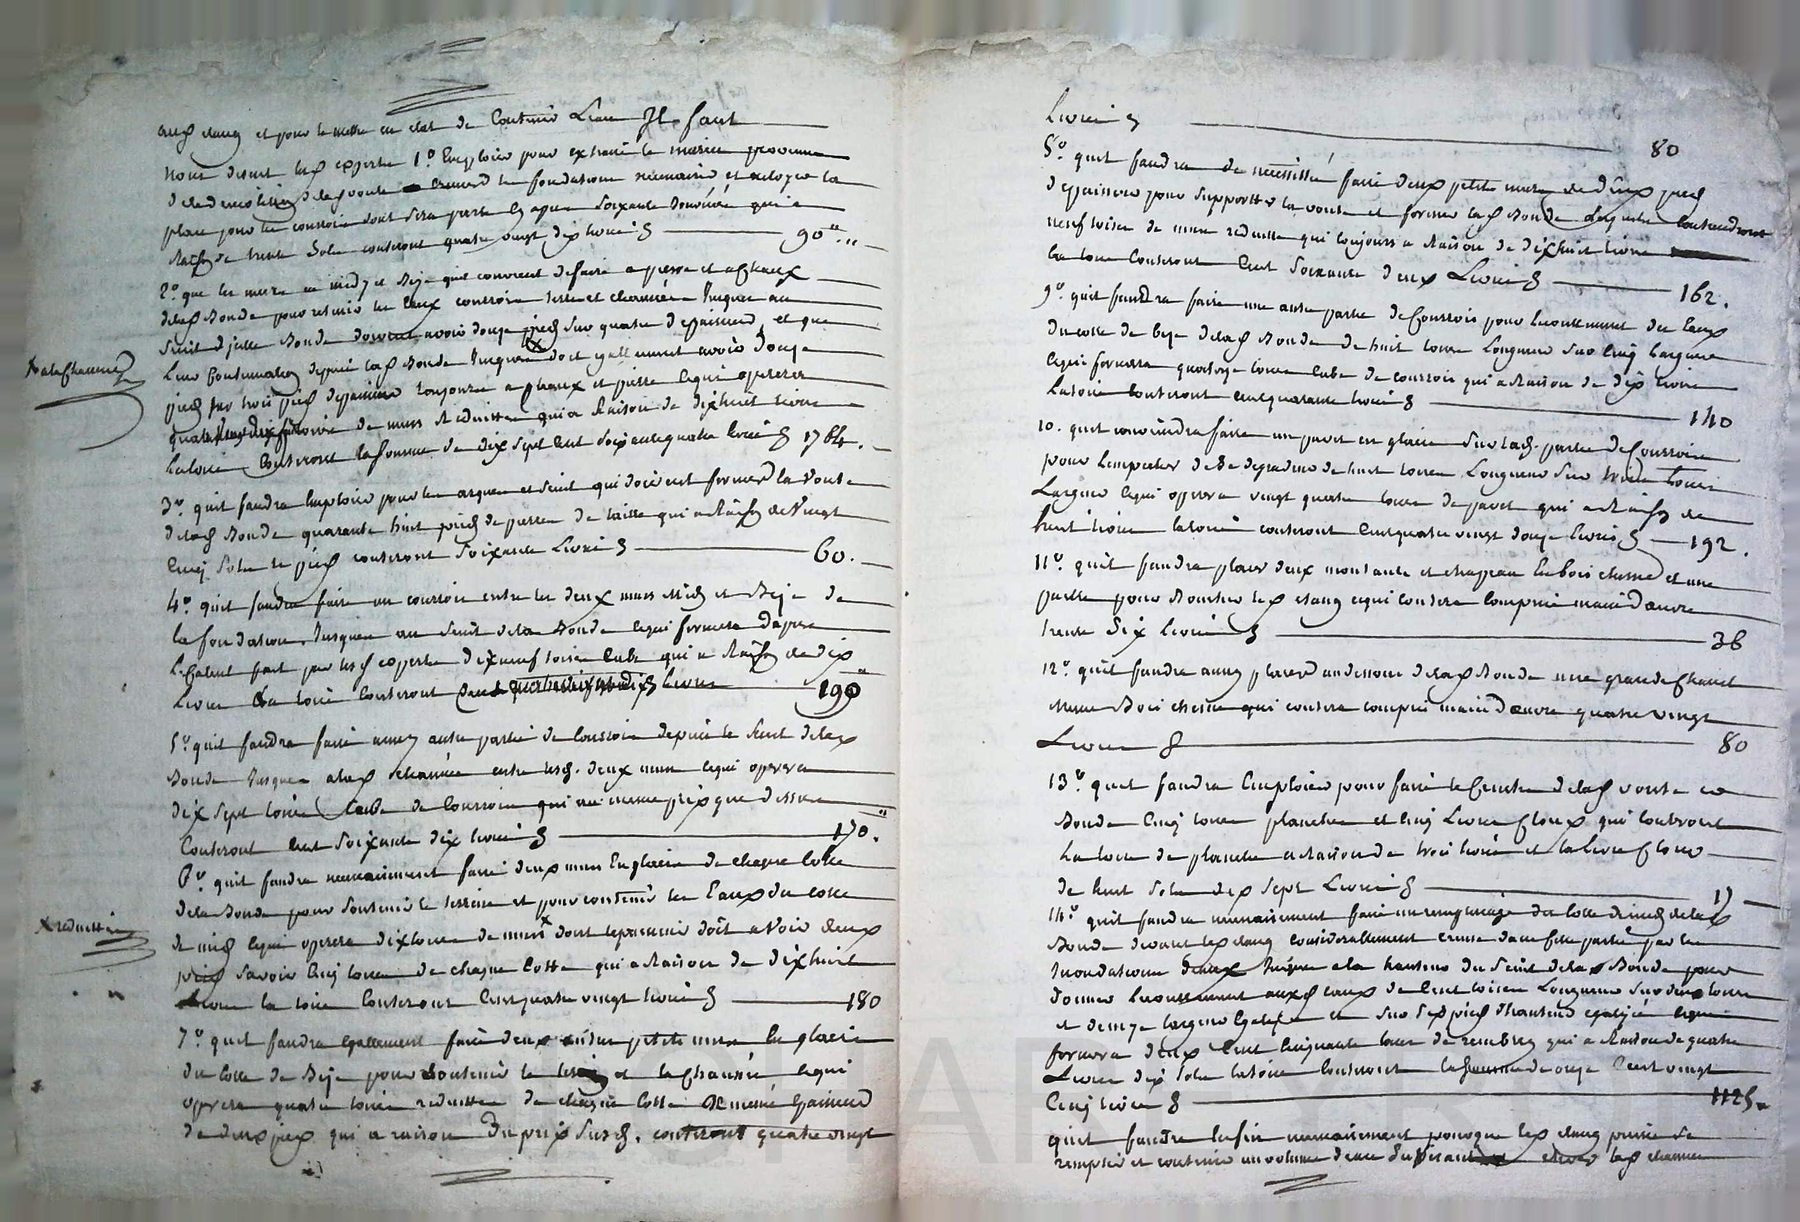 et pour le mettre en état de contenir Leau Il faut
nous disent les experts 1º Employer pour extraire le
de la demolition de la voute creuser les fondations necessaires et nétoyer la
place pour les construire sera soixante Journées qui a
Raison de trente Sols couteront quatre vingt dix Livres 90
2º que les murs en midy et Bize qui convient de faire a pierre et a Chaux
de la Bonde pour retenir les Eaux terre et chaussée Jusques au
Seuil Bonde doivent avoir douze pieds sur quatre d'epaisseur, et que
Leur Continuation depuis Bonde Jusques doit avoir douze
pieds sur trois pieds d'epaisseur toujours a Chaux et pierre ce qui operera
X a la Chaussée
toises de murs Reduittes qui a Raison de dixhuit Livres
La toise Couteront la Somme de dix sept cent soixante quatre Livres 1764.
3º quil faudra Employer pour les arques et Seuil qui doivent former la Voute
de lad. Bonde quarante huit pieds de pierre de taille qui a Raison de Vingt
Cinq Sols le pied couteront soixante Livres 60.
4º quil faudra faire un courroi entre les deux murs midy et Bize de
la fondation Jusques au Seuil de la Bonde ce qui formera dapres
Lesd. experts dixneuf toises Cube qui a Raison de dix
Livres La toise Couteront Livres 190
5º quil faudra faire aussy autre partie de Courroi depuis le Seuil de la
Bonde Jusques a la chaussée entre lesd. deux murs ce qui operera
dix sept toises Cube de Courroi qui au mesme prix que dessus
Couteront Cent Soixante dix Livres 170.
6º quil faudra necessairement faire deux murs En glacis de chaque Cotte
de la Bonde pour Soutenir le terrein et pour contenir les Eaux du cotte
de midy ce qui operera dix toises de murs X dont lepaisseur doit avoir deux
X reduittes
pieds savoir Cinq toises de chaque Cotte qui a Raison de dixhuit
Livres la toise Couteront Cent quatre vingt Livres 180
7º quil faudra Egallement faire deux autres petits murs En glacis
du Cotte de Bize pour Soutenir le et la Chaussée ce qui
operera quatre toises reduittes de chaque Cotte de mesme Epaisseur
de deux pieds qui a raison Du prix Susd. couteront quatre vingt
Livres 80
8º quil faudra de necessité faire deux petits murs de deux pieds
d'epaisseur pour Supporter la voute et former lad. Bonde Lesquels Contiendront
neuf toises de murs reduittes qui toujours a Raison de dixhuit Livres
La toise Couteront Cent Soixante deux Livres 162.
9º quil faudra faire une autre partie de Courroi pour Lecoullement des Eaux
du cotte de bize de lad. Bonde de huit toises Longueur sur Cinq Largeur
ce qui formera quatorze toises Cube de courroi qui a Raison de dix Livres
La toise Couteront Cent quarante Livres 140
10. quil conviendra faire un pavet en glacis sur lad. partie de Courroi
pour Lempecher de Se degrader de huit toises Longueur sur trois toises
Largeur ce qui operera vingt quatre toises de pavet qui a Raison de
huit Livres La toise couteront Cent quatre vingt douze Livres 192.
11º quil faudra placer deux montants et chapeau En bois chesne et une
pour Boucher led. etang ce qui coutera Compris main D'œuvre
trente Six Livres 36
12º quil faudra aussy placer au dessous de lad. Bonde une grande Chanel
mesme Bois chesne qui coutera compris main D'œuvre quatre vingt
Livres 80
13º quil faudra Employer pour faire le Ceintre de lad. voute
Bonde Cinq toises planches et Cinq Livres Cloux qui Couteront
La toise de planche a Raison de trois Livres et la Livre Cloux
de huit sols dix sept Livres 17
14º quil faudra necessairement faire un remplissage du Cotte de midy de la
Bonde devant led. etang Considerablement Creusé dans cette partie par les
Inondations d'eaux Jusques a la hauteur du Seuil de la Bonde pour
donner Lecoullement auxd. Eaux de Cent toises Longueur sur deux toises
et demy largeur et sur six pieds d'hauteur ce qui
formera deux Cent Cinquante toises de remblay qui a Raison de quatre
Livres dix Sols La toise Couteront la Somme de onze Cent vingt
Cinq Livres 1125.
quil faudra Enfin necessairement pour que led. etang puisse se
remplir et contenir un volume d'eau Suffisant lad. chaussée